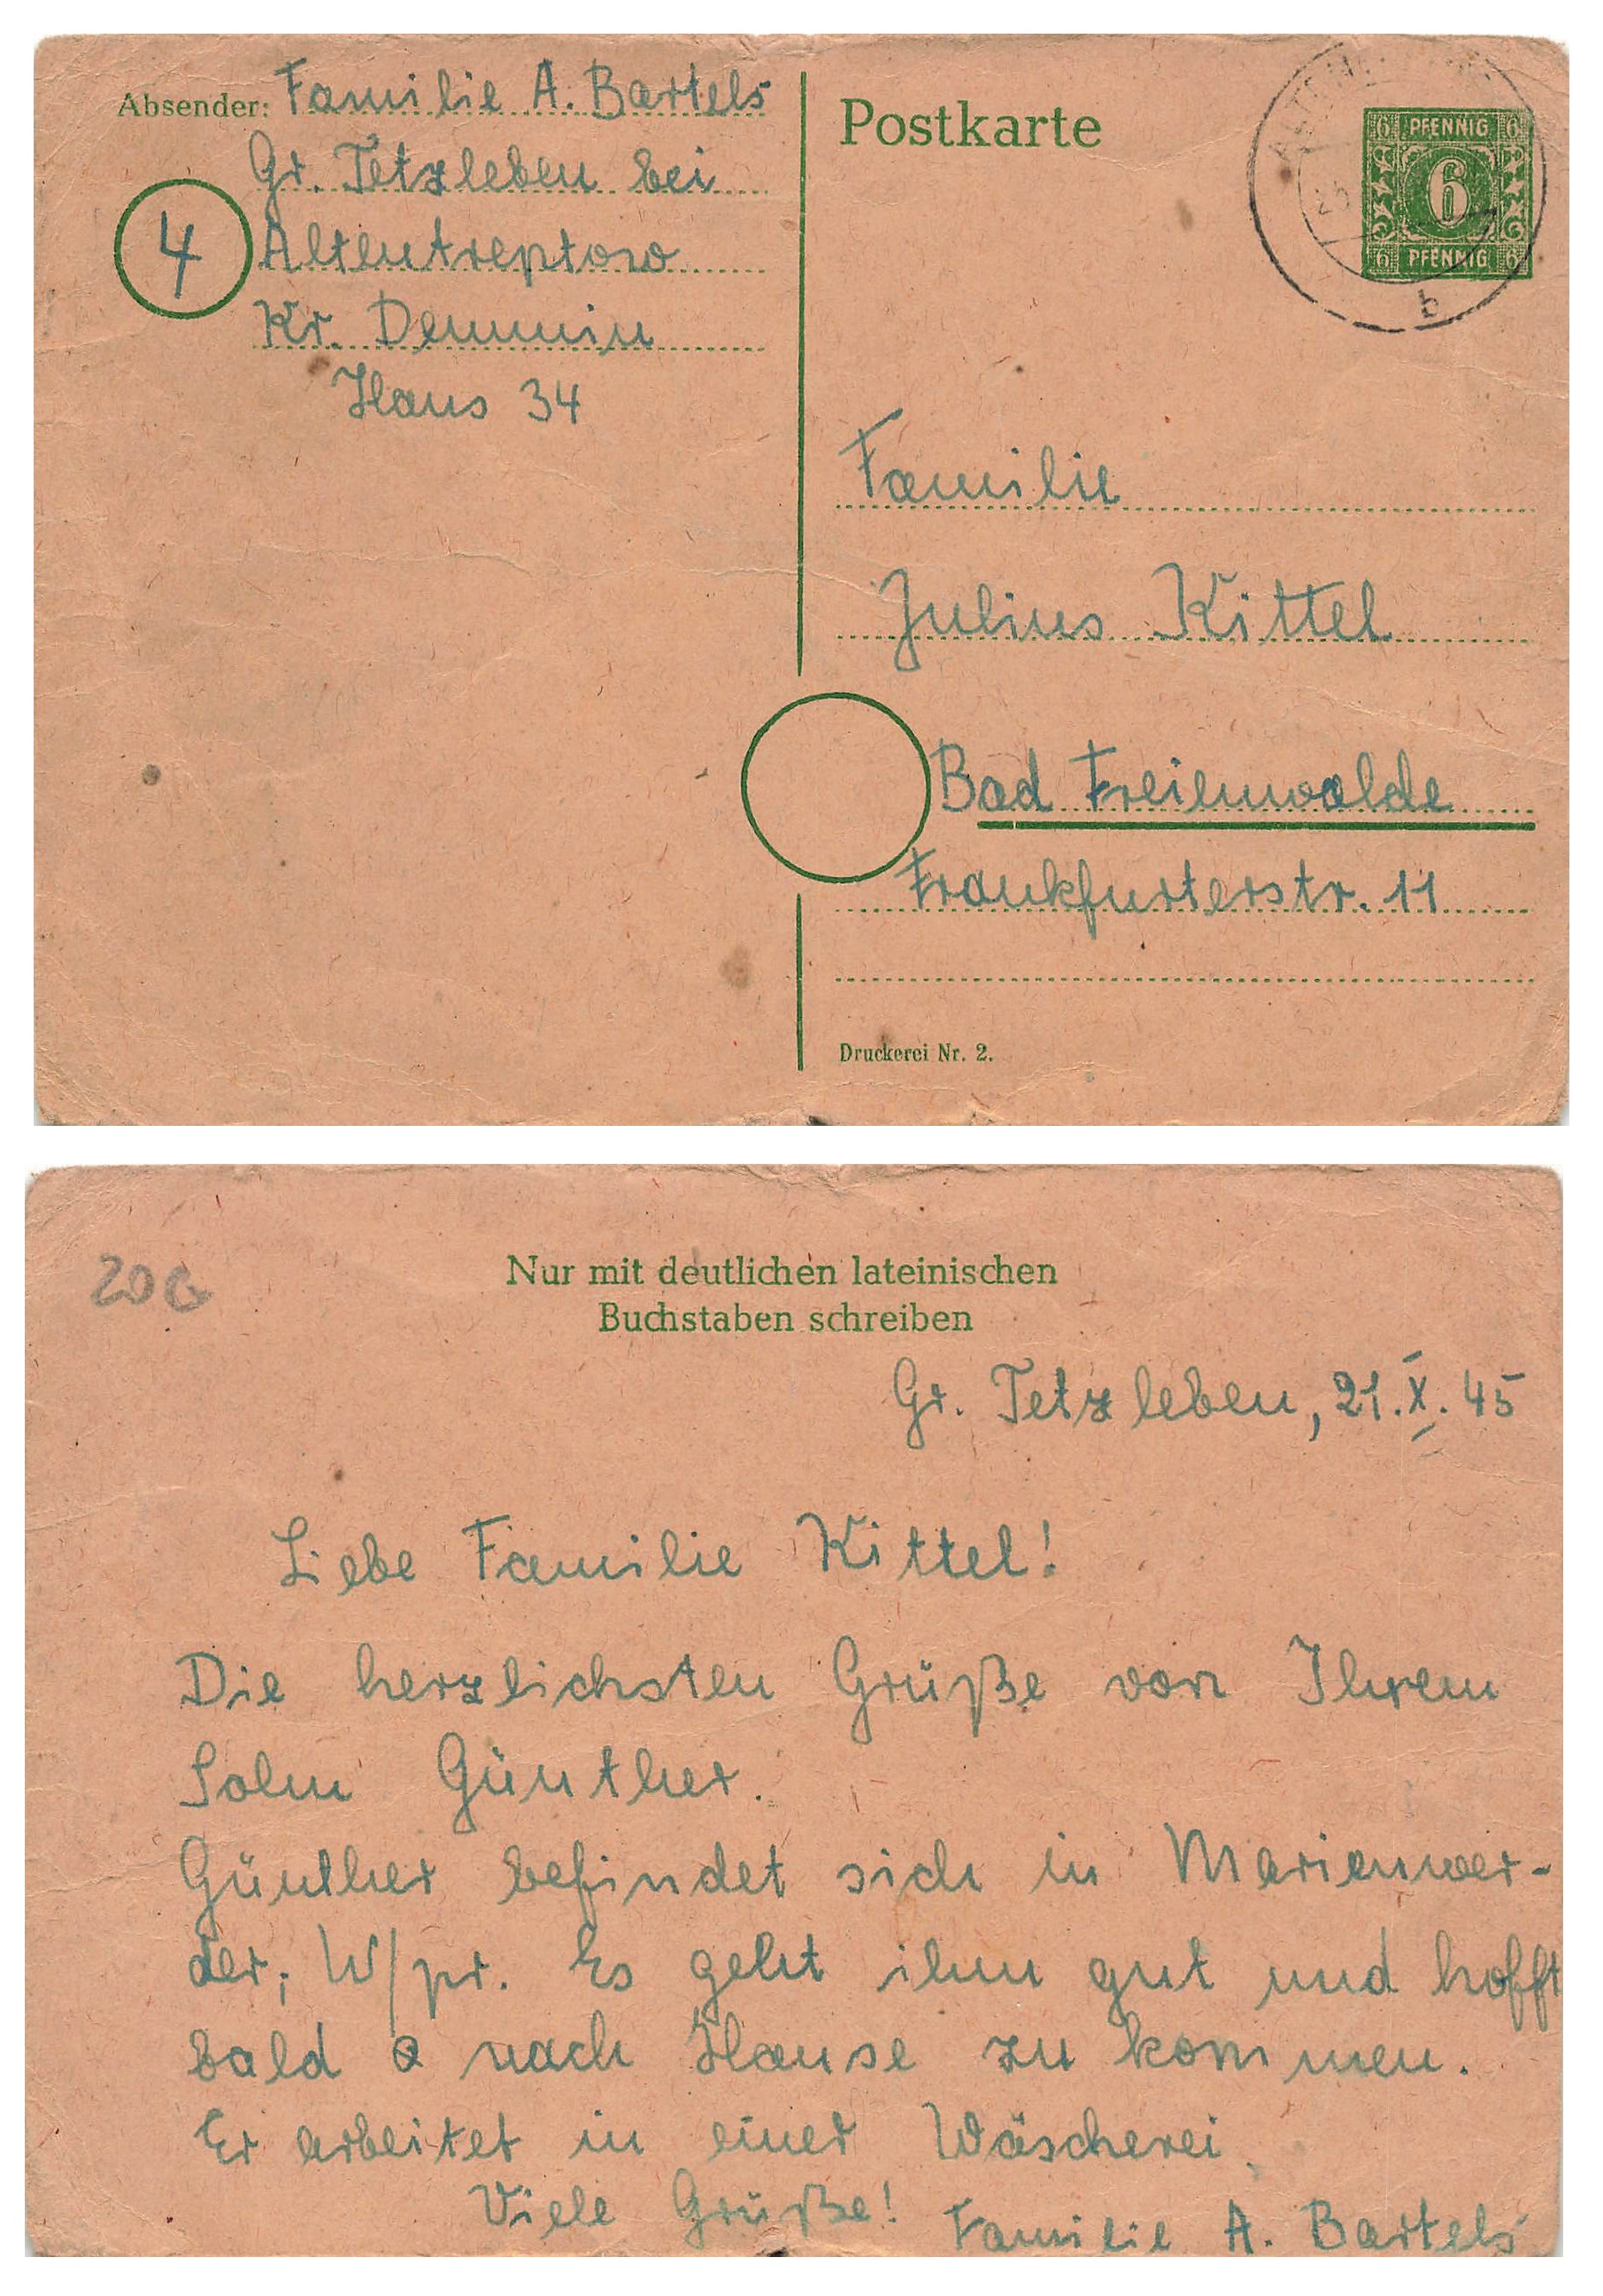 Absender: Familie A. Bartels
Gr. Tetzleben bei
4 Altentreptow
Kr. Demmin
Haus 34
Postkarte
6 PFENNIG 6
6
6 PFENNIG 6
b
Familie
Julius Kittel
Bad Freienwalde
Frankfurterstr. 11
Druckerei Nr. 2.
Nur mit deutlichen lateinischen
Buchstaben schreiben
Gr. Tetzleben, 21.X.45
Liebe Familie Kittel!
Die herzlichsten Grüße von Ihrem
Sohn Günther.
Günther befindet sich in Marienwer-
der, W/pr. Es geht ihm gut und hofft
bald nach Hause zu kommen.
Er arbeitet in einer Wäscherei.
Viele Grüße! Familie A. Bartels